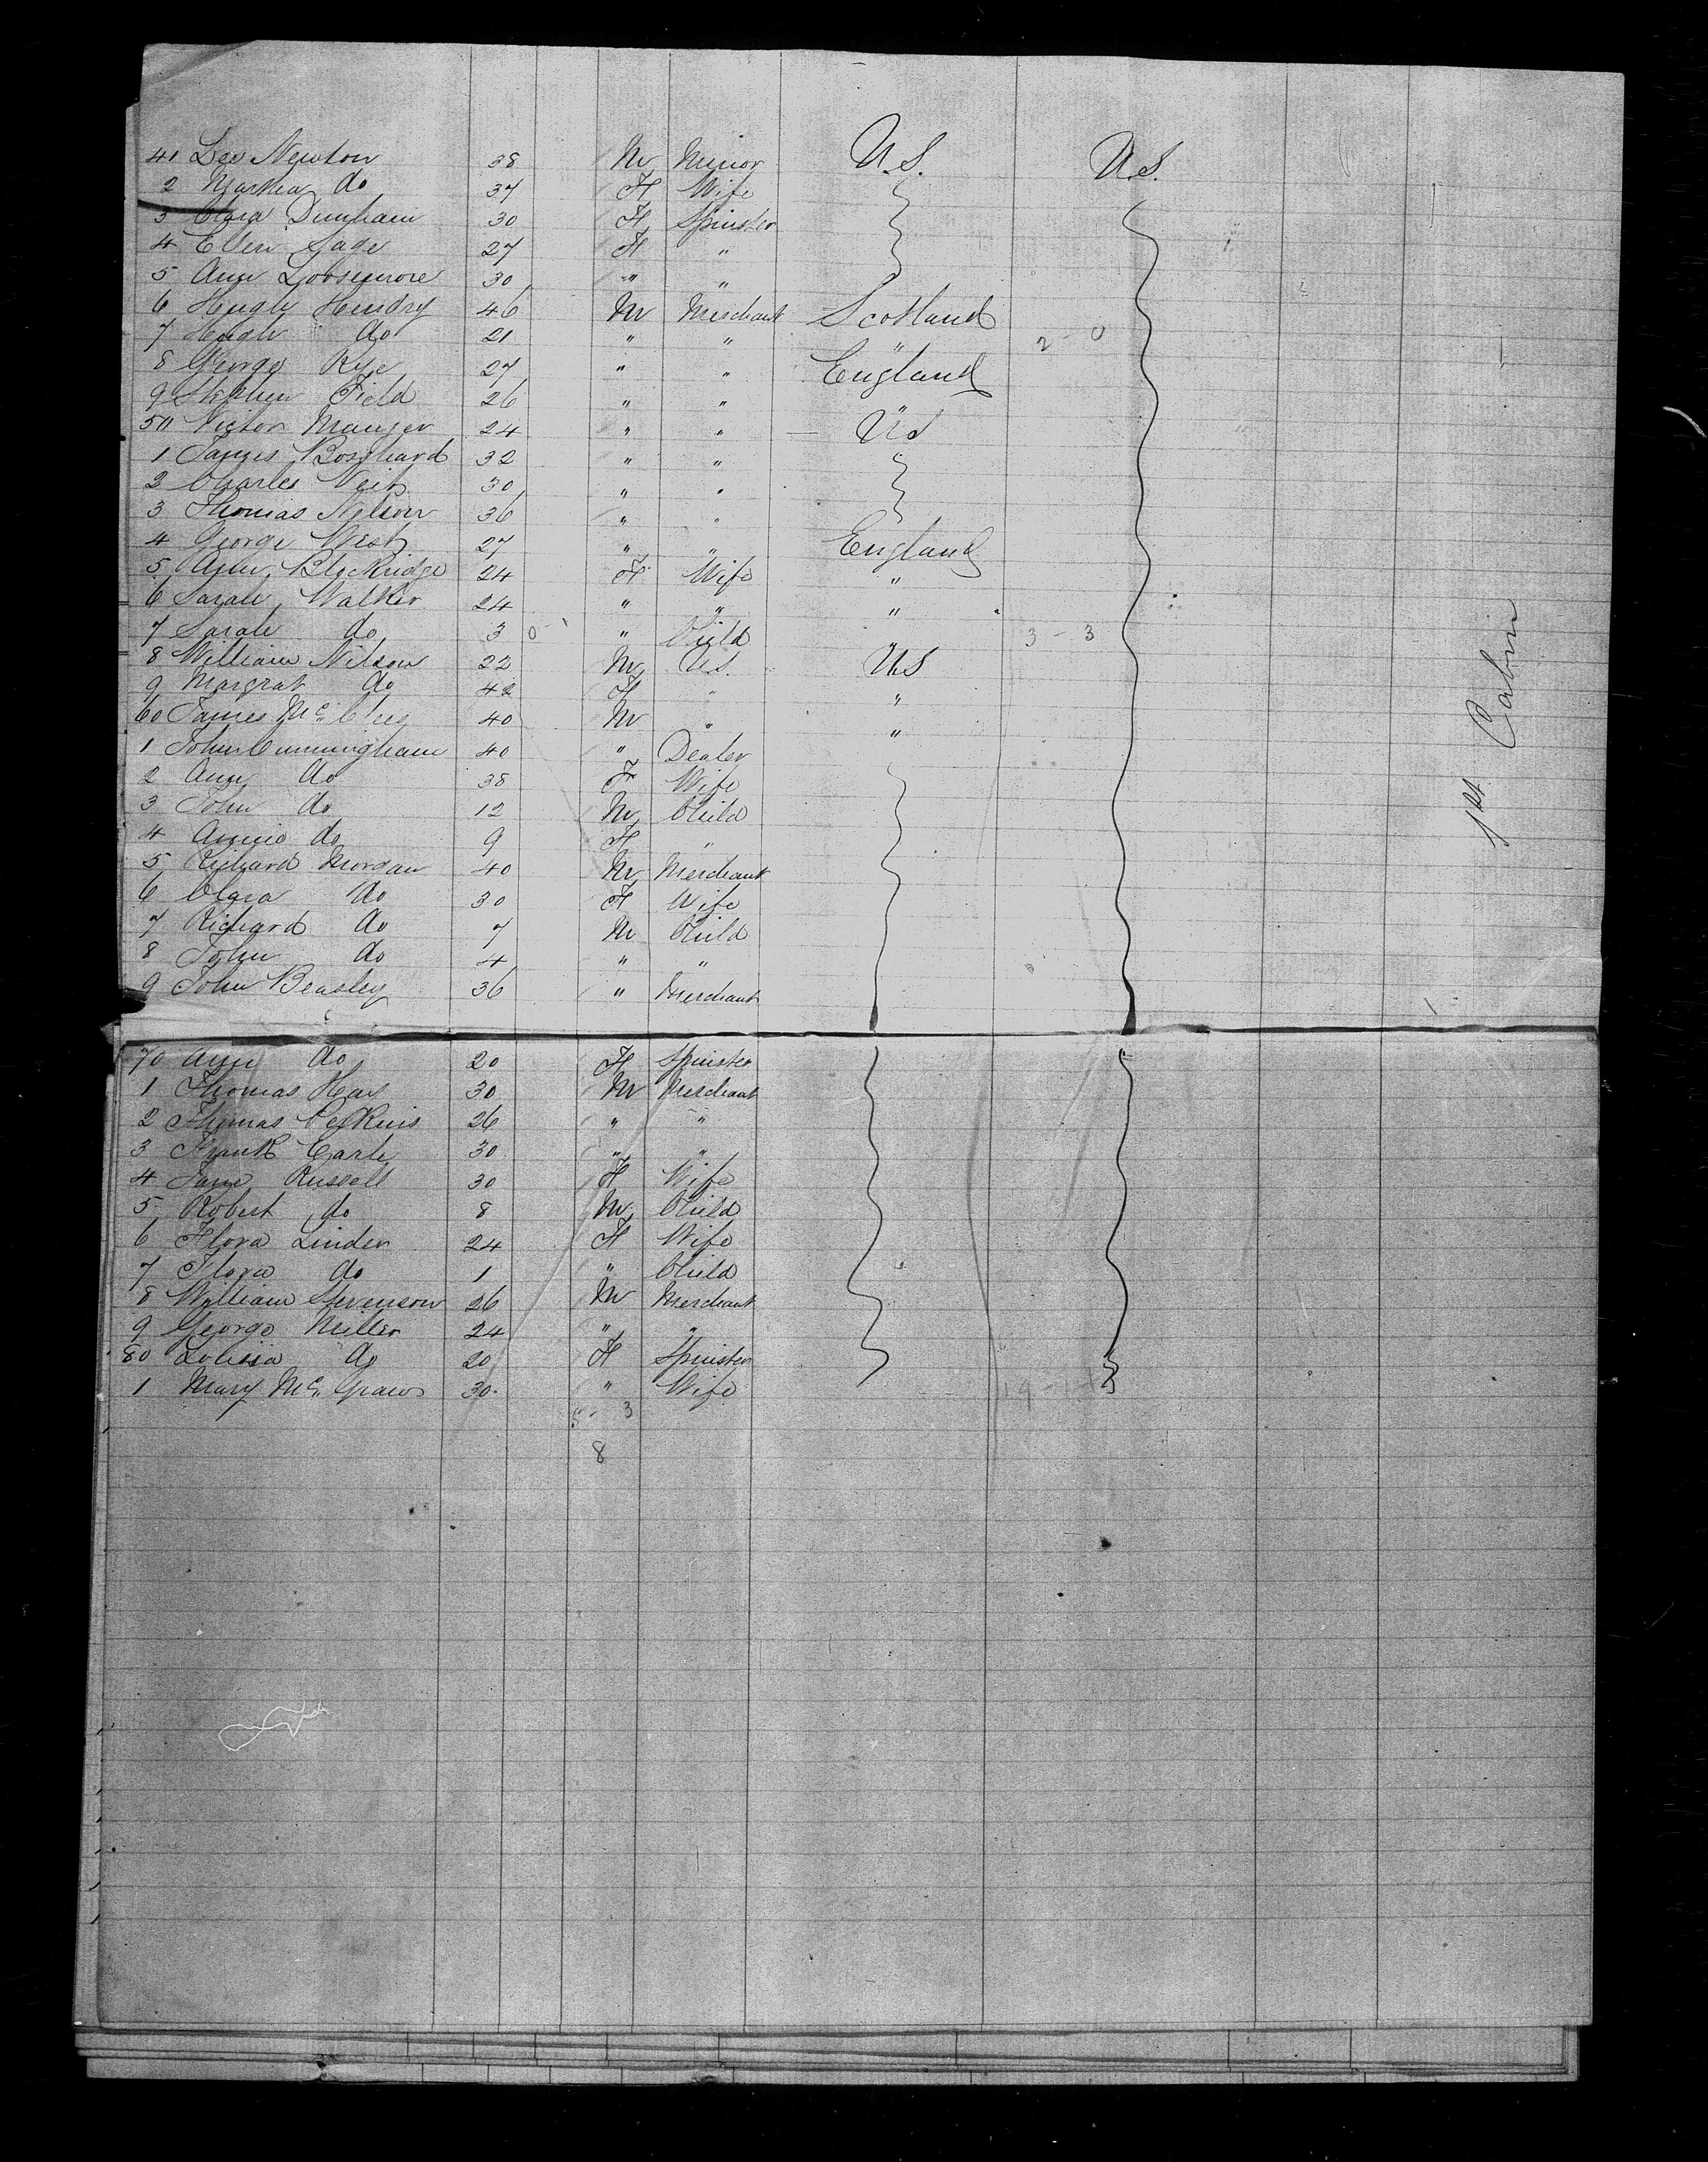 41 Leo Newton 38 M Minor U.S. U.S.
2 Martha do 37 F Wife
3 Clara Dunham 30 F Spinster
4 Ellen Sage 27 F "
5 Ann Loosemore 30 " "
6 Hugh Hendry 46 M Merchant Scotland
7 Hugh do 21 " " " 2-0
8 George Rye 27 " " England
9 Stephen Field 26 " " "
50 Victor Mauger 24 " " US
1 James Bosshard 32 " "
2 Charles Veit 30 " "
3 Thomas Nelson 36 " "
4 George West 27 " " England
5 Ann Blackridge 24 F Wife "
6 Sarah Walker 24 " " "
7 Sarah do 3 0-1 " Child 3-3
8 William Nilson 22 M U.S. US
9 Margrat do 42 F " "
60 James Mc 40 M " "
1 John Cunningham 40 " Dealer
2 Ann do 38 F Wife
3 John do 12 M Child
4 Annie do 9 F "
5 Richard Morgan 40 M Merchant
6 Clara do 30 F Wife
7 Richard do 7 M Child
8 John do 4 " "
9 John Beasley 36 " Merchant
70 Ann do 20 F Spinster
1 Thomas 30 M Merchant
2 Thomas Perkins 26 " "
3 Frank Earle 30 " "
4 Jane Russell 30 F Wife
5 Robert do 8 M Child
6 Flora Linder 24 F Wife
7 Flora do 1 " Child
8 William Stevenson 26 M Merchant
9 George Miller 24 " "
80 Louisia do 20 F Spinster
1 Mary Mc Graw 30 " Wife
5-3
8
1st Cabin